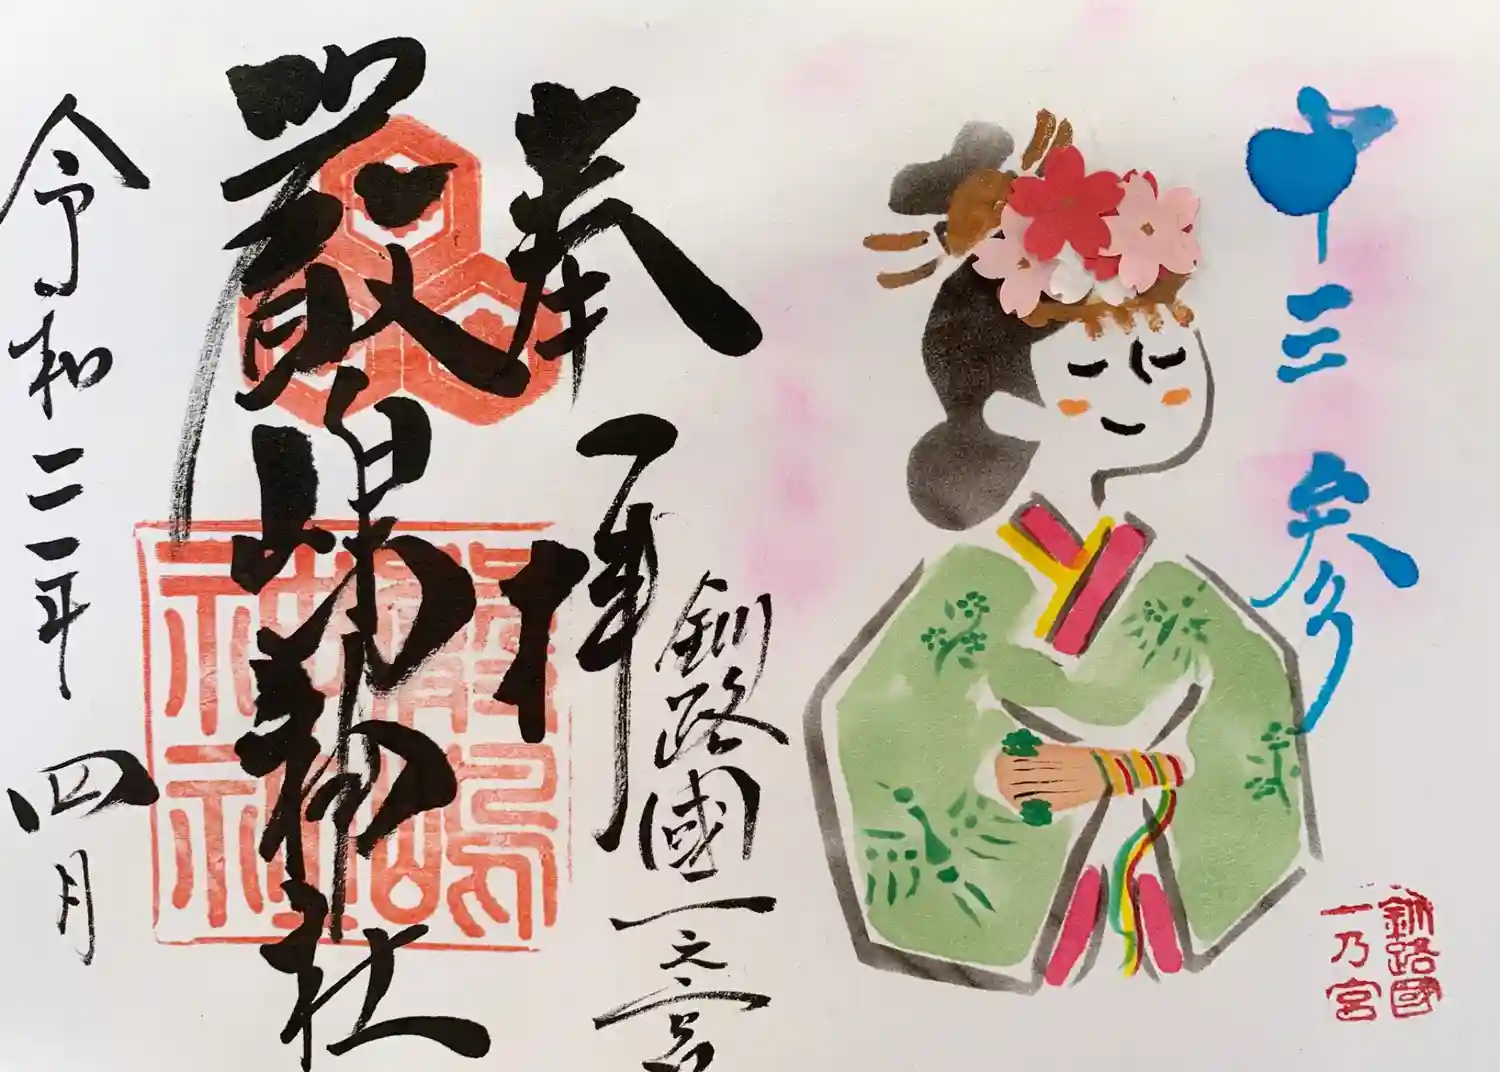 十三参り
釧路國
一乃宮
奉拝
釧路國一之宮
厳島神社
令和二年 四月